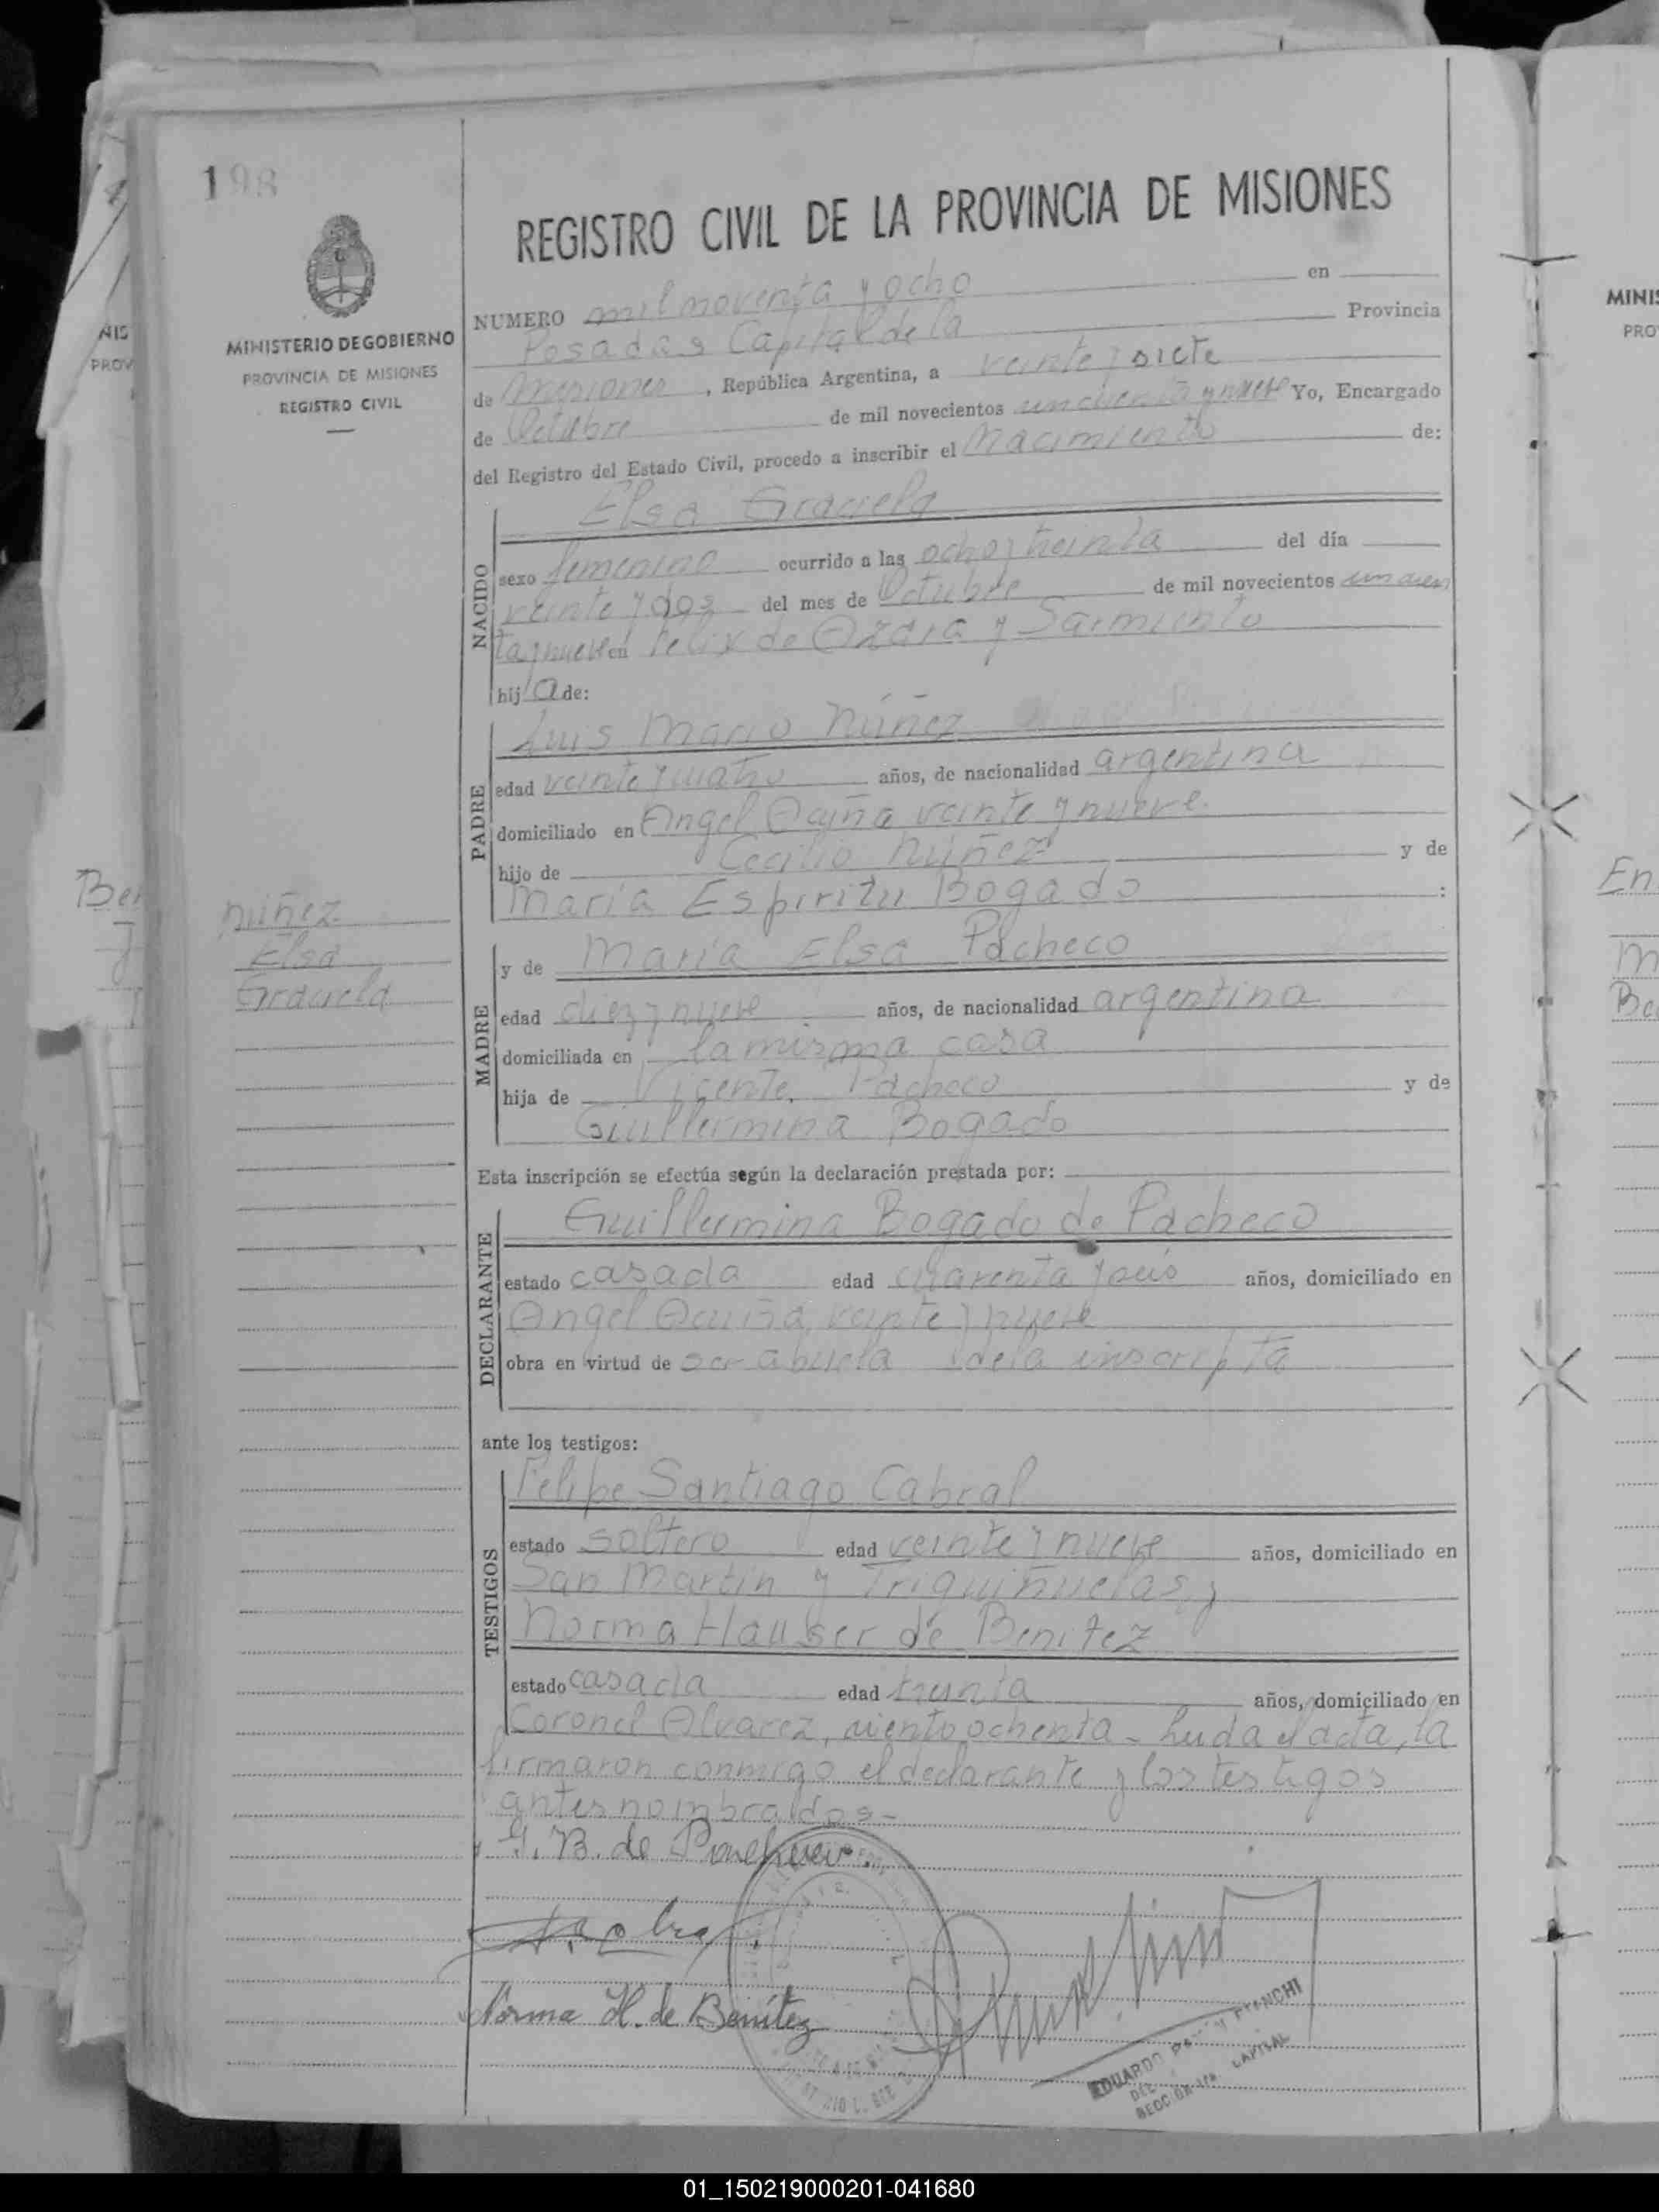 198
MINISTERIO DE GOBIERNO
PROVINCIA DE MISIONES
REGISTRO CIVIL
REGISTRO CIVIL DE LA PROVINCIA DE MISIONES
NUMERO mil noventa y ocho en
Posadas Capital de la Provincia
de Misiones, República Argentina, a veinte y siete
de Octubre de mil novecientos cincuenta y nueve Yo, Encargado
del Registro del Estado Civil, procedo a inscribir el Nacimiento de:
NACIDO
Elsa Graciela
sexo femenino ocurrido a las ocho y treinta del día
veinte y dos del mes de Octubre de mil novecientos cincuen
ta y nueve en Felix de Azara y Sarmiento
hij a de:
PADRE
Luis Mario Núñez
edad veinte y cuatro años, de nacionalidad argentina
domiciliado en Angel Acuña veinte y nueve.
hijo de Cecilio Núñez y de
María Espiritu Bogado :
Núñez
Elsa
Graciela
MADRE
y de María Elsa Pacheco
edad diez y nueve años, de nacionalidad argentina
domiciliada en la misma casa
hija de Vicente Pacheco y de
Guillermina Bogado
Esta inscripción se efectúa según la declaración prestada por:
DECLARANTE
Guillermina Bogado de Pacheco
estado casada edad cuarenta y años, domiciliado en
Angel Acuña veinte y nueve
obra en virtud de ser abuela de la inscripta
ante los testigos:
TESTIGOS
Felipe Santiago Cabral
estado soltero edad veinte y nueve años, domiciliado en
San Martín y Triquiñuelas y
Norma Hauser de Benitez
estado casada edad treinta años, domiciliado en
Coronel Alvarez, ciento ochenta - Leida el acta, la
firmaron conmigo el declarante y los testigos
antes nombrados-
G. B. de
Norma H. de Benítez
EDUARDO BIANCHI
SECCION 1ra CAPITAL
Ber
En
M
Be
MINIS
PRO
NIS
PROV
01_150219000201-041680